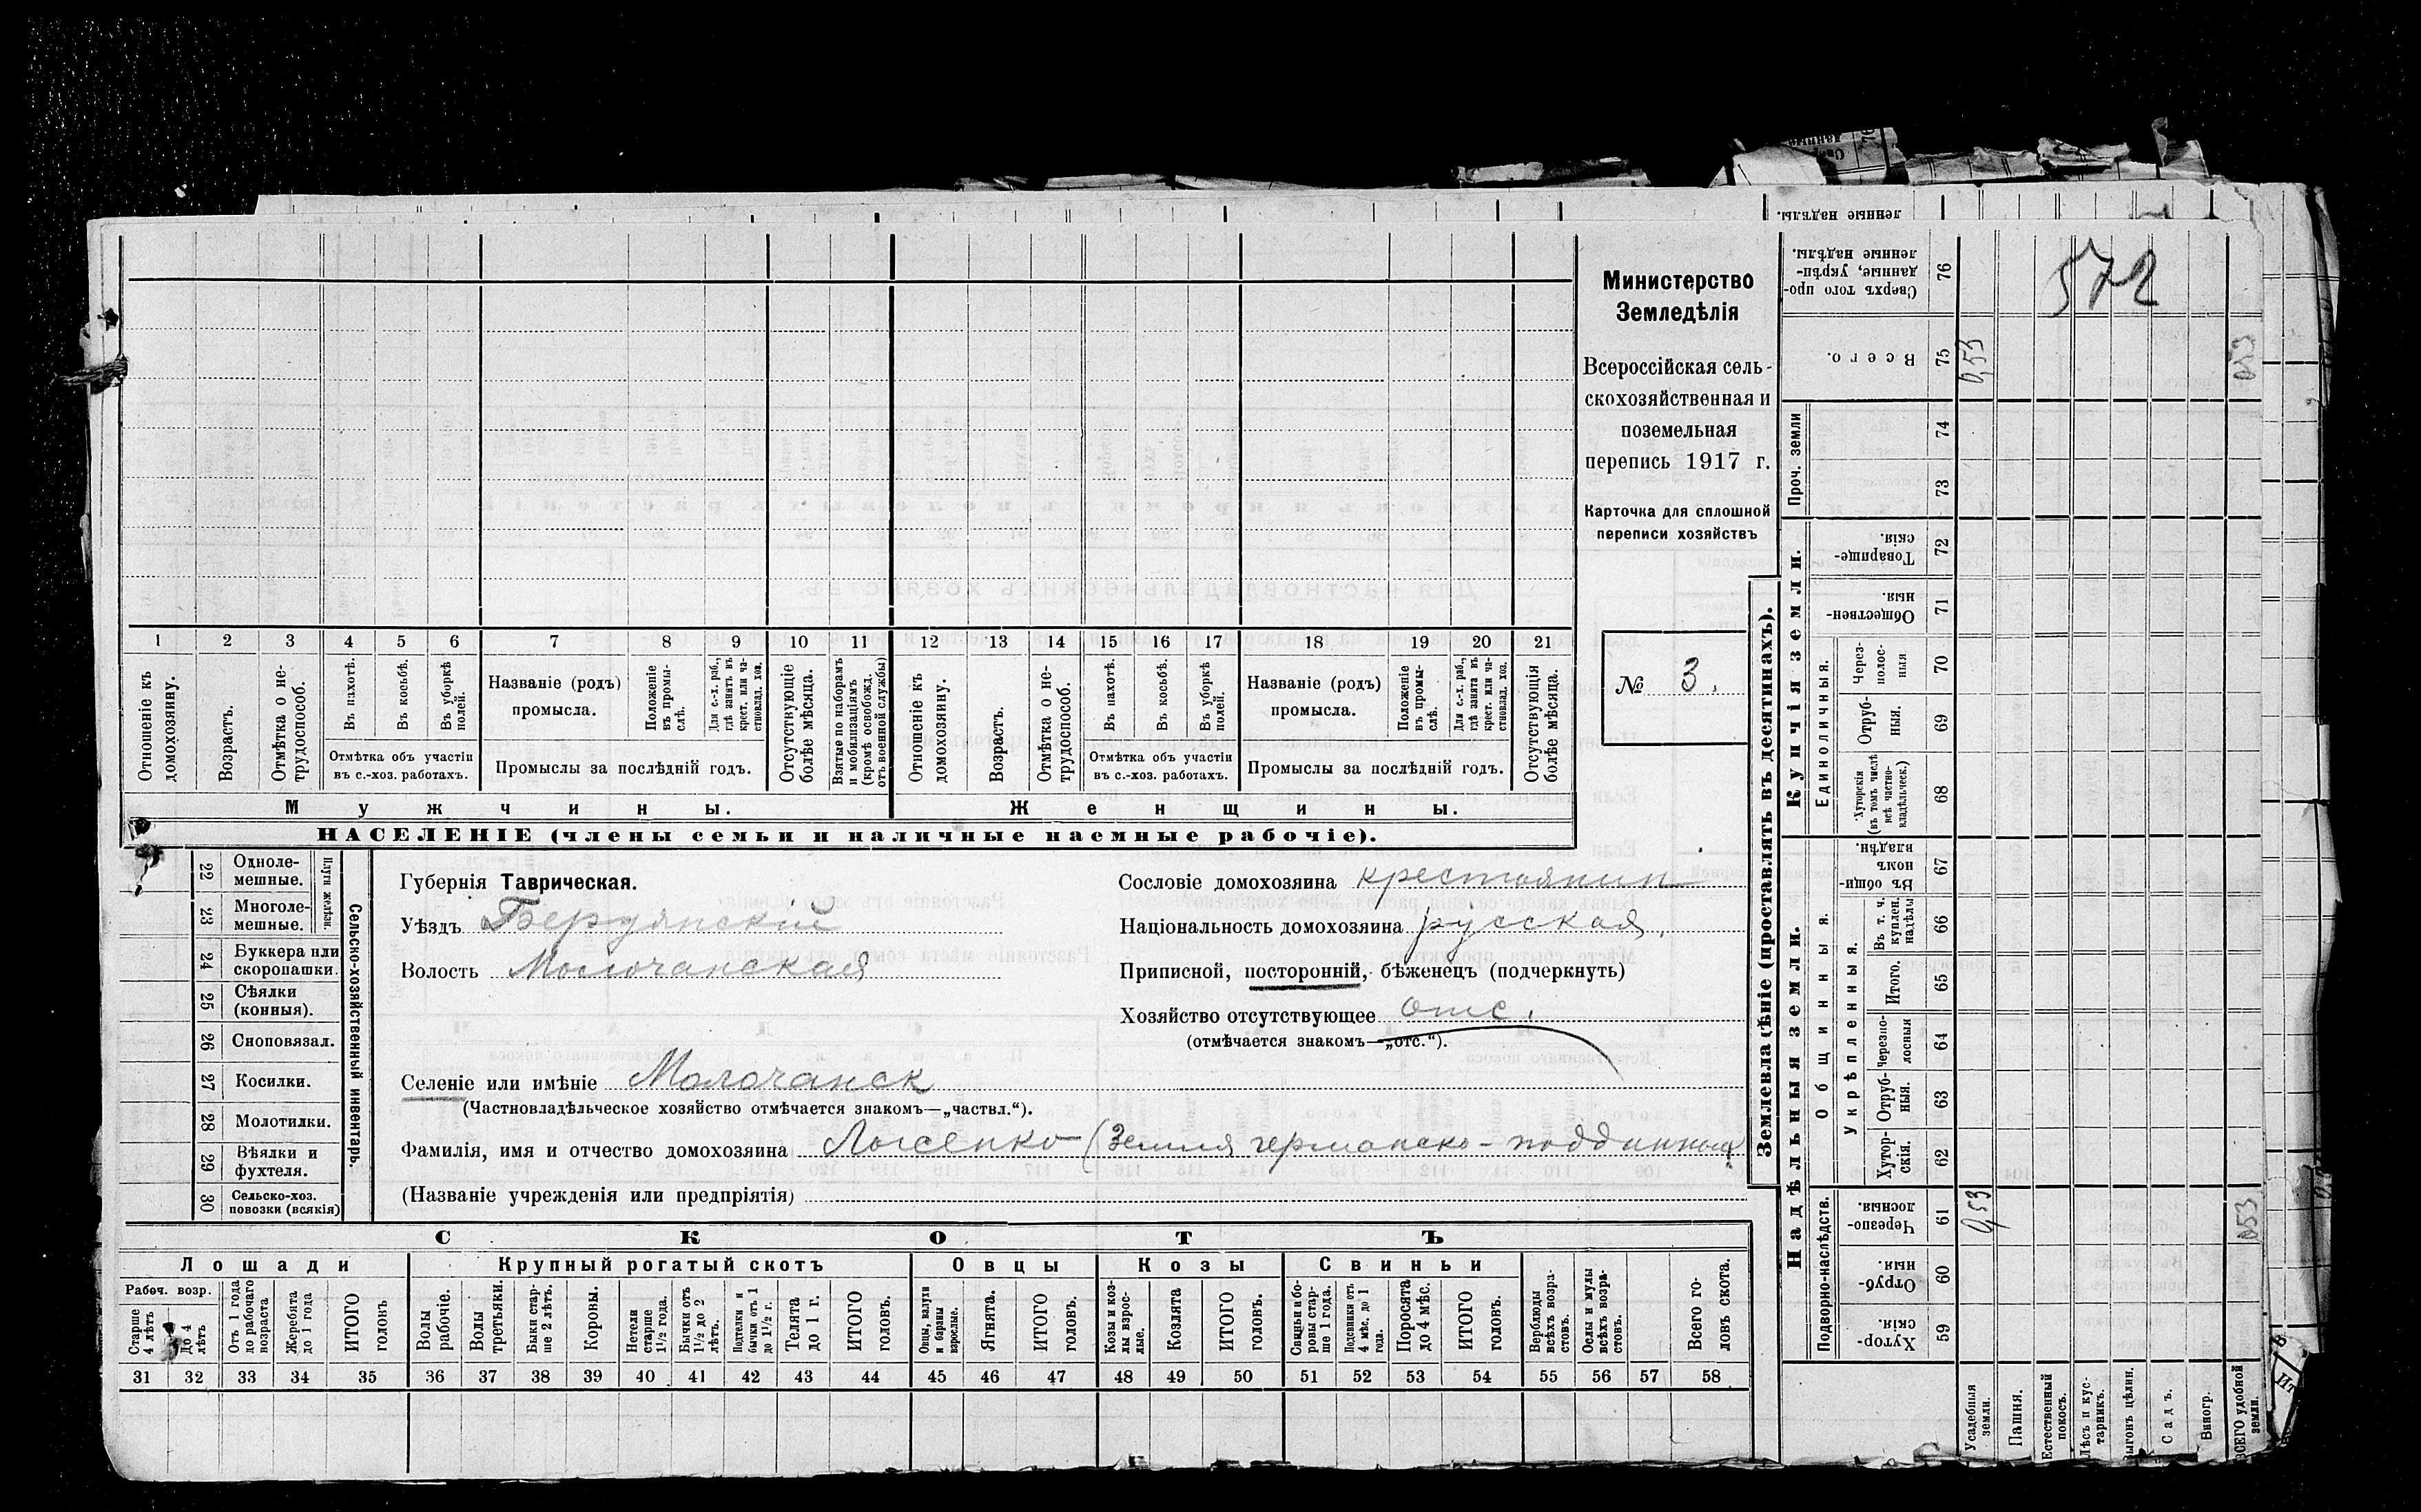 ленные надѣлы.
Сверхъ того про-
данные, укрѣп-
ленные надѣлы.
76
572
Министерство
Земледѣлія
Всероссійская сель-
скохозяйственная и
поземельная
перепись 1917 г.
Карточка для сплошной
переписи хозяйствъ
№ 3.
1 2 3 4 5 6 7 8 9 10 11 12 13 14 15 16 17 18 19 20 21
Отношеніе къ домохозяину.
Возрастъ.
Отмѣтка о не-
трудоспособ.
Въ пахотѣ.
Въ косьбѣ.
Въ уборкѣ полей.
Отмѣтка объ участіи
въ с.-хоз. работахъ.
Названіе (родъ)
промысла.
Положеніе въ промы-
слѣ.
Для с.-х. раб.,
гдѣ занятъ въ
крест. или ча-
стновлад. хоз.
Промыслы за послѣдній годъ.
Отсутствующіе
болѣе мѣсяца.
Взятые по наборамъ
и мобилизаціямъ
(кромѣ освобожд.
отъ военной службы)
Отношеніе къ
домохозяину.
Возрастъ.
Отмѣтка о не-
трудоспособ.
Въ пахотѣ.
Въ косьбѣ.
Въ уборкѣ полей.
Отмѣтка объ участіи
въ с.-хоз. работахъ.
Названіе (родъ)
промысла.
Положеніе
въ промы-
слѣ.
Для с.-х. раб.,
гдѣ занята въ
крест. или ча-
стновлад. хоз.
Промыслы за послѣдній годъ.
Отсутствующія
болѣе мѣсяца.
Мужчины.
Женщины.
НАСЕЛЕНІЕ (члены семьи и наличные наемные рабочіе).
22 Одноле-
мешные.
23 Многоле-
мешные.
Плуги желѣзн.
24 Буккера или
скоропашки.
25 Сѣялки
(конныя).
26 Сноповязал.
27 Косилки.
28 Молотилки.
29 Вѣялки и
фухтеля.
30 Сельско-хоз.
повозки (всякія)
Сельско-хозяйственный инвентарь.
Губернія Таврическая.
Уѣздъ Бердянскій
Волость Молочанская
Сословіе домохозяина крестьянин
Національность домохозяина русская.
Приписной, посторонній, бѣженецъ (подчеркнуть)
Хозяйство отсутствующее отс.
(отмѣчается знакомъ—„отс.“).
Селеніе или имѣніе Молочанск
(Частновладѣльческое хозяйство отмѣчается знакомъ—„частвл.“).
Фамилія, имя и отчество домохозяина Лысенко (Земля германско-подданных
(Названіе учрежденія или предпріятія)
СКОТЪ
Лошади
Крупный рогатый скотъ
Овцы
Козы
Свиньи
Рабоч. возр.
Старше
4 лѣтъ
До 4
лѣтъ
Отъ 1 года
до рабочаго
возраста
Жеребята
до 1 года
ИТОГО
головъ
Волы
рабочіе.
Волы
третьяки.
Быки стар-
ше 2 лѣтъ.
Коровы.
Нетели
старше
1½ года.
Бычки отъ
1½ до 2
лѣтъ.
Подтелки и
бычки отъ 1
до 1½ г.
Телята
до 1 г.
ИТОГО
головъ.
Овцы, валухи
и бараны
взрослые.
Ягнята.
ИТОГО
головъ.
Козы и коз-
лы взрос-
лые.
Козлята
ИТОГО
головъ.
Свиньи и бо-
ровы стар-
ше 1 года.
Подсвинки отъ
4 мѣс. до 1
года.
Поросята
до 4 мѣс.
ИТОГО
головъ.
Верблюды
всѣхъ возра-
стовъ.
Ослы и мулы
всѣхъ возра-
стовъ.
Всего го-
ловъ скота.
31 32 33 34 35 36 37 38 39 40 41 42 43 44 45 46 47 48 49 50 51 52 53 54 55 56 57 58
Землевладѣніе (проставлять въ десятинахъ).
Купчія земли.
Проч. земли
Единоличныя.
Всего. 75 0,53 0,53
74
73
Товарище-
скія. 72
Обществен-
ныя. 71
Через-
полос-
ныя 70
Отруб-
ныя. 69
Хуторскія
(въ томъ числѣ
всѣ частно-
владѣльческ.) 68
Надѣльныя земли.
Общинныя.
Укрѣпленныя.
Въ общи-
номъ
владѣн. 67
Въ т. ч.
куплен.
надѣлы 66
Итого. 65
Черезпо-
лосныя 64
Отруб-
ныя. 63
Хутор-
скія. 62
Подворно-наслѣдств.
Черезпо-
лосныя. 61 0,53 0,53
Отруб-
ныя. 60
Хутор-
скія. 59
Усадебныя
земли.
Пашня.
Естественный
покосъ.
Лѣсъ и кус-
тарникъ.
Выгонъ цѣлин.
Садъ.
Виногр.
ВСЕГО удобной
земли.